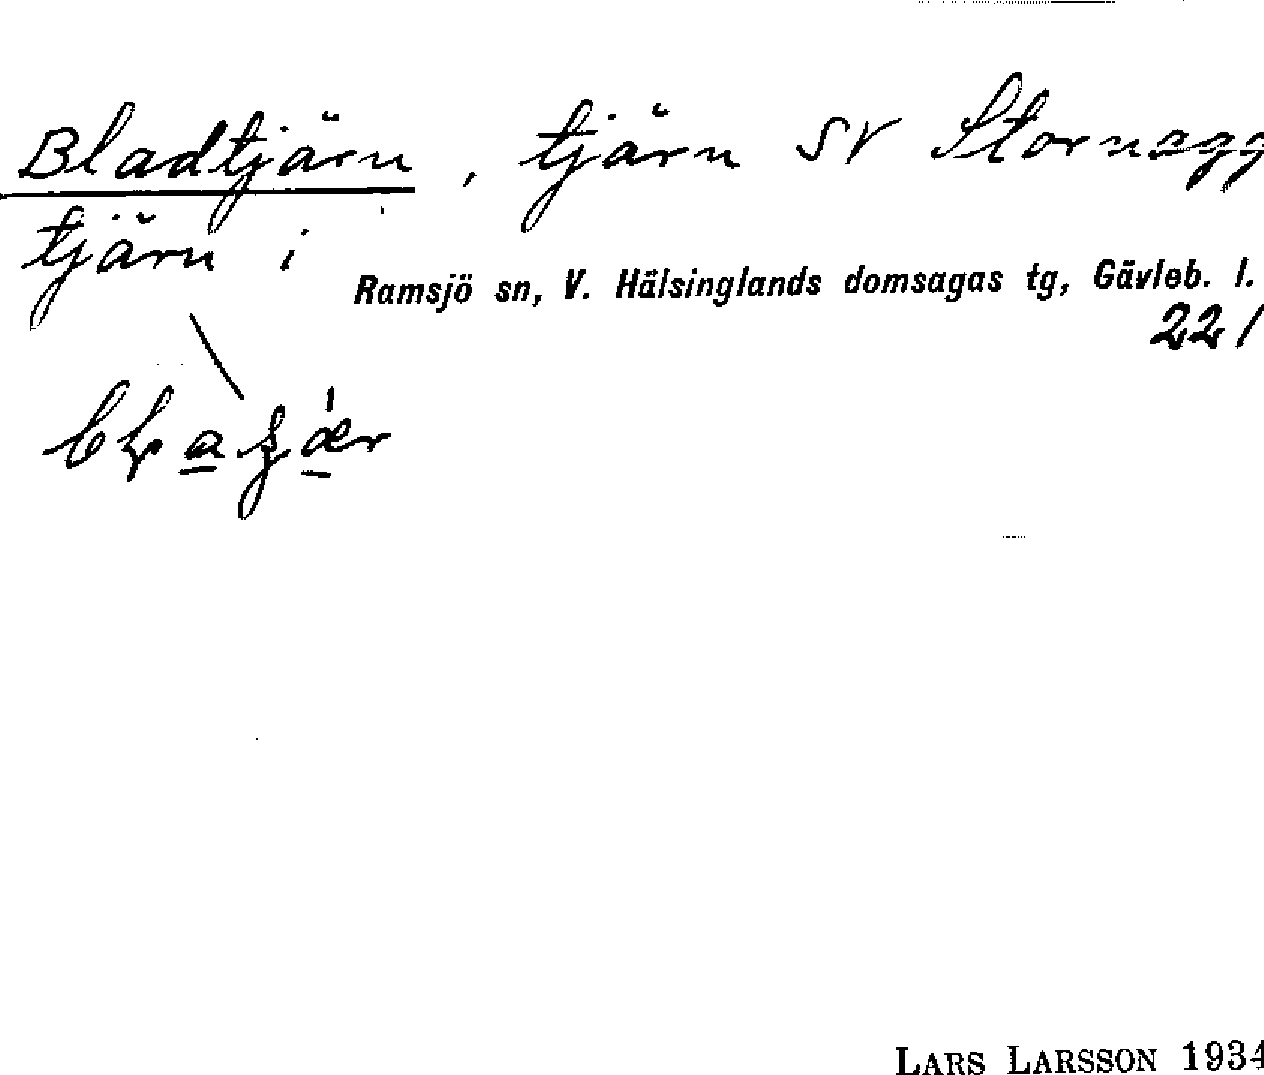 Bladtjärn, tjärn SV Stornagg
tjärn i
Ramsjö sn, V. Hälsinglands domsagas tg, Gävleb. l.
221
LARS LARSSON 1934